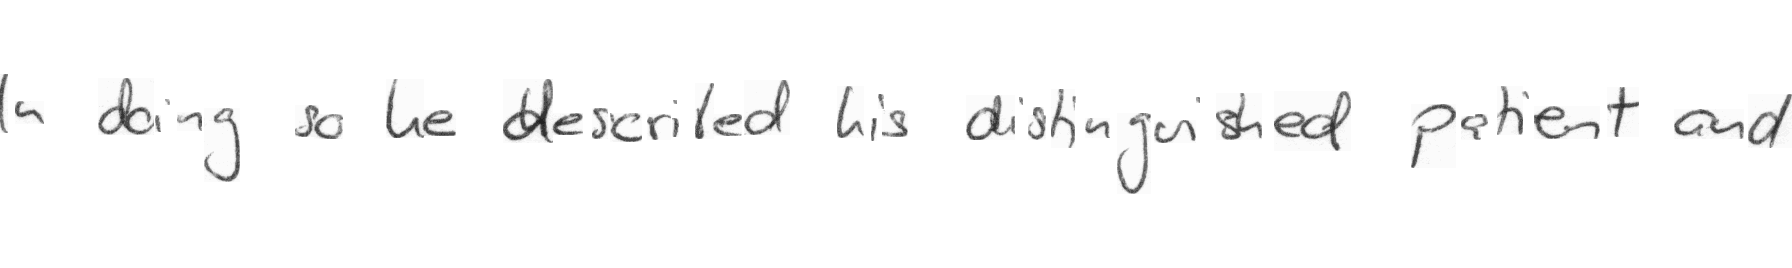 In doing so he described his distinguished patient and